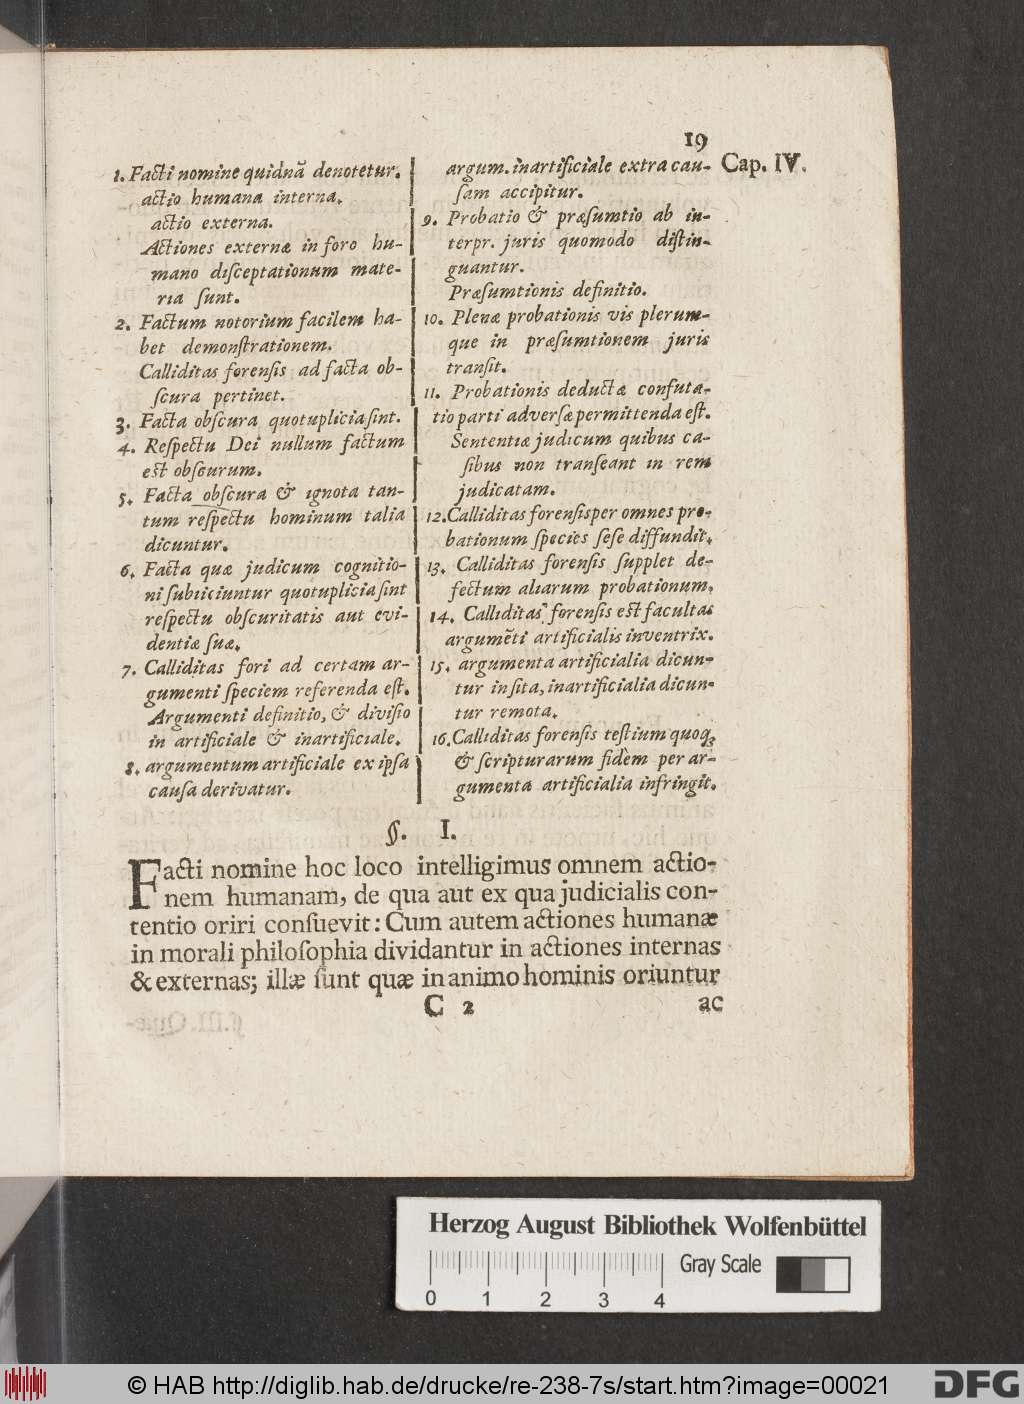 19
Cap. IV.
1. Facti nomine quidnã denotetur.
actio humana interna.
actio externa.
Actiones externæ in foro hu-
mano disceptationum mate-
ria sunt.
2. Factum notorium facilem ha-
bet demonſtrationem.
Calliditas forenſis ad facta ob-
ſcura pertinet.
3. Facta obſcura quotupliciaſint.
4. Reſpectu Dei nullum factum
eſt obſcurum.
5. Facta obſcura & ignota tan-
tum reſpectu hominum talia
dicuntur.
6. Facta quæ judicum cognitio-
ni ſubiiciuntur quotupliciaſint
reſpectu obſcuritatis aut evi-
dentiæ ſuæ.
7. Calliditas fori ad certam ar-
gumenti ſpeciem referenda eſt.
Argumenti definitio, & diviſio
in artificiale & inartificiale.
8. argumentum artificiale ex ipſa
cauſa derivatur.
argum. inartificiale extra cau-
ſam accipitur.
9. Probatio & præſumtio ab in-
terpr. juris quomodo diſtin-
guantur.
Præſumtionis definitio.
10. Plenæ probationis vis plerum-
que in præſumtionem juris
tranſit.
11. Probationis deductæ confuta-
tio parti adverſæ permittenda eſt.
Sententiæ judicum quibus ca-
ſibus non tranſeant in rem
judicatam.
12. Calliditas forenſis per omnes pro-
bationum ſpecies ſeſe diffundit.
13. Calliditas forenſis ſupplet de-
fectum aliarum probationum.
14. Calliditas forenſis eſt facultas
argumẽti artificialis inventrix.
15. argumenta artificialia dicun-
tur inſita, inartificialia dicun-
tur remota.
16. Calliditas forenſis teſtium quoqꝫ
& ſcripturarum fidèm per ar-
gumenta artificialia infringit.
§. I.
Facti nomine hoc loco intelligimus omnem actio-
nem humanam, de qua aut ex qua judicialis con-
tentio oriri conſuevit: Cum autem actiones humanæ
in morali philoſophia dividantur in actiones internas
& externas; illæ ſunt quæ in animo hominis oriuntur
C 2
ac
Herzog August Bibliothek Wolfenbüttel
Gray Scale
0 1 2 3 4
© HAB http://diglib.hab.de/drucke/re-238-7s/start.htm?image=00021
DFG